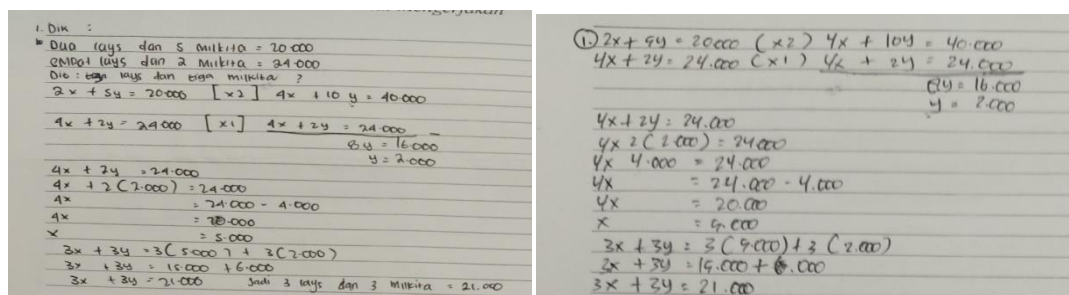 mengerjakan
1. Dik :
Dua lays dan 5 milkita = 20.000
eMPat lays dan 2 milkita = 24.000
Dit : lays dan tiga milkita ?
2x + 5y = 20.000 [x2] 4x + 10 y = 40.000
4x + 2y = 24.000 [x1] 4x + 2y = 24.000 -
8y = 16.000
y = 2.000
4x + 2y = 24.000
4x + 2 (2.000) = 24.000
4x = 24.000 - 4.000
4x = 20.000
x = 5.000
3x + 3y = 3 (5.000) + 3 (2.000)
3x + 3y = 15.000 + 6.000
3x + 3y = 21.000 Jadi 3 lays dan 3 Milkita = 21.000
1. 2x + 9y = 20.000 (x2) 4x + 10y = 40.000
4x + 2y = 24.000 (x1) 4x + 2y = 24.000
8y = 16.000
y = 2.000
4x + 2y = 24.000
4x 2 (2.000) = 24.000
4x 4.000 = 24.000
4x = 24.000 - 4.000
4x = 20.000
x = 9.000
3x + 3y = 3 (9.000) + 3 (2.000)
3x + 3y = 19.000 + 6.000
3x + 3y = 21.000